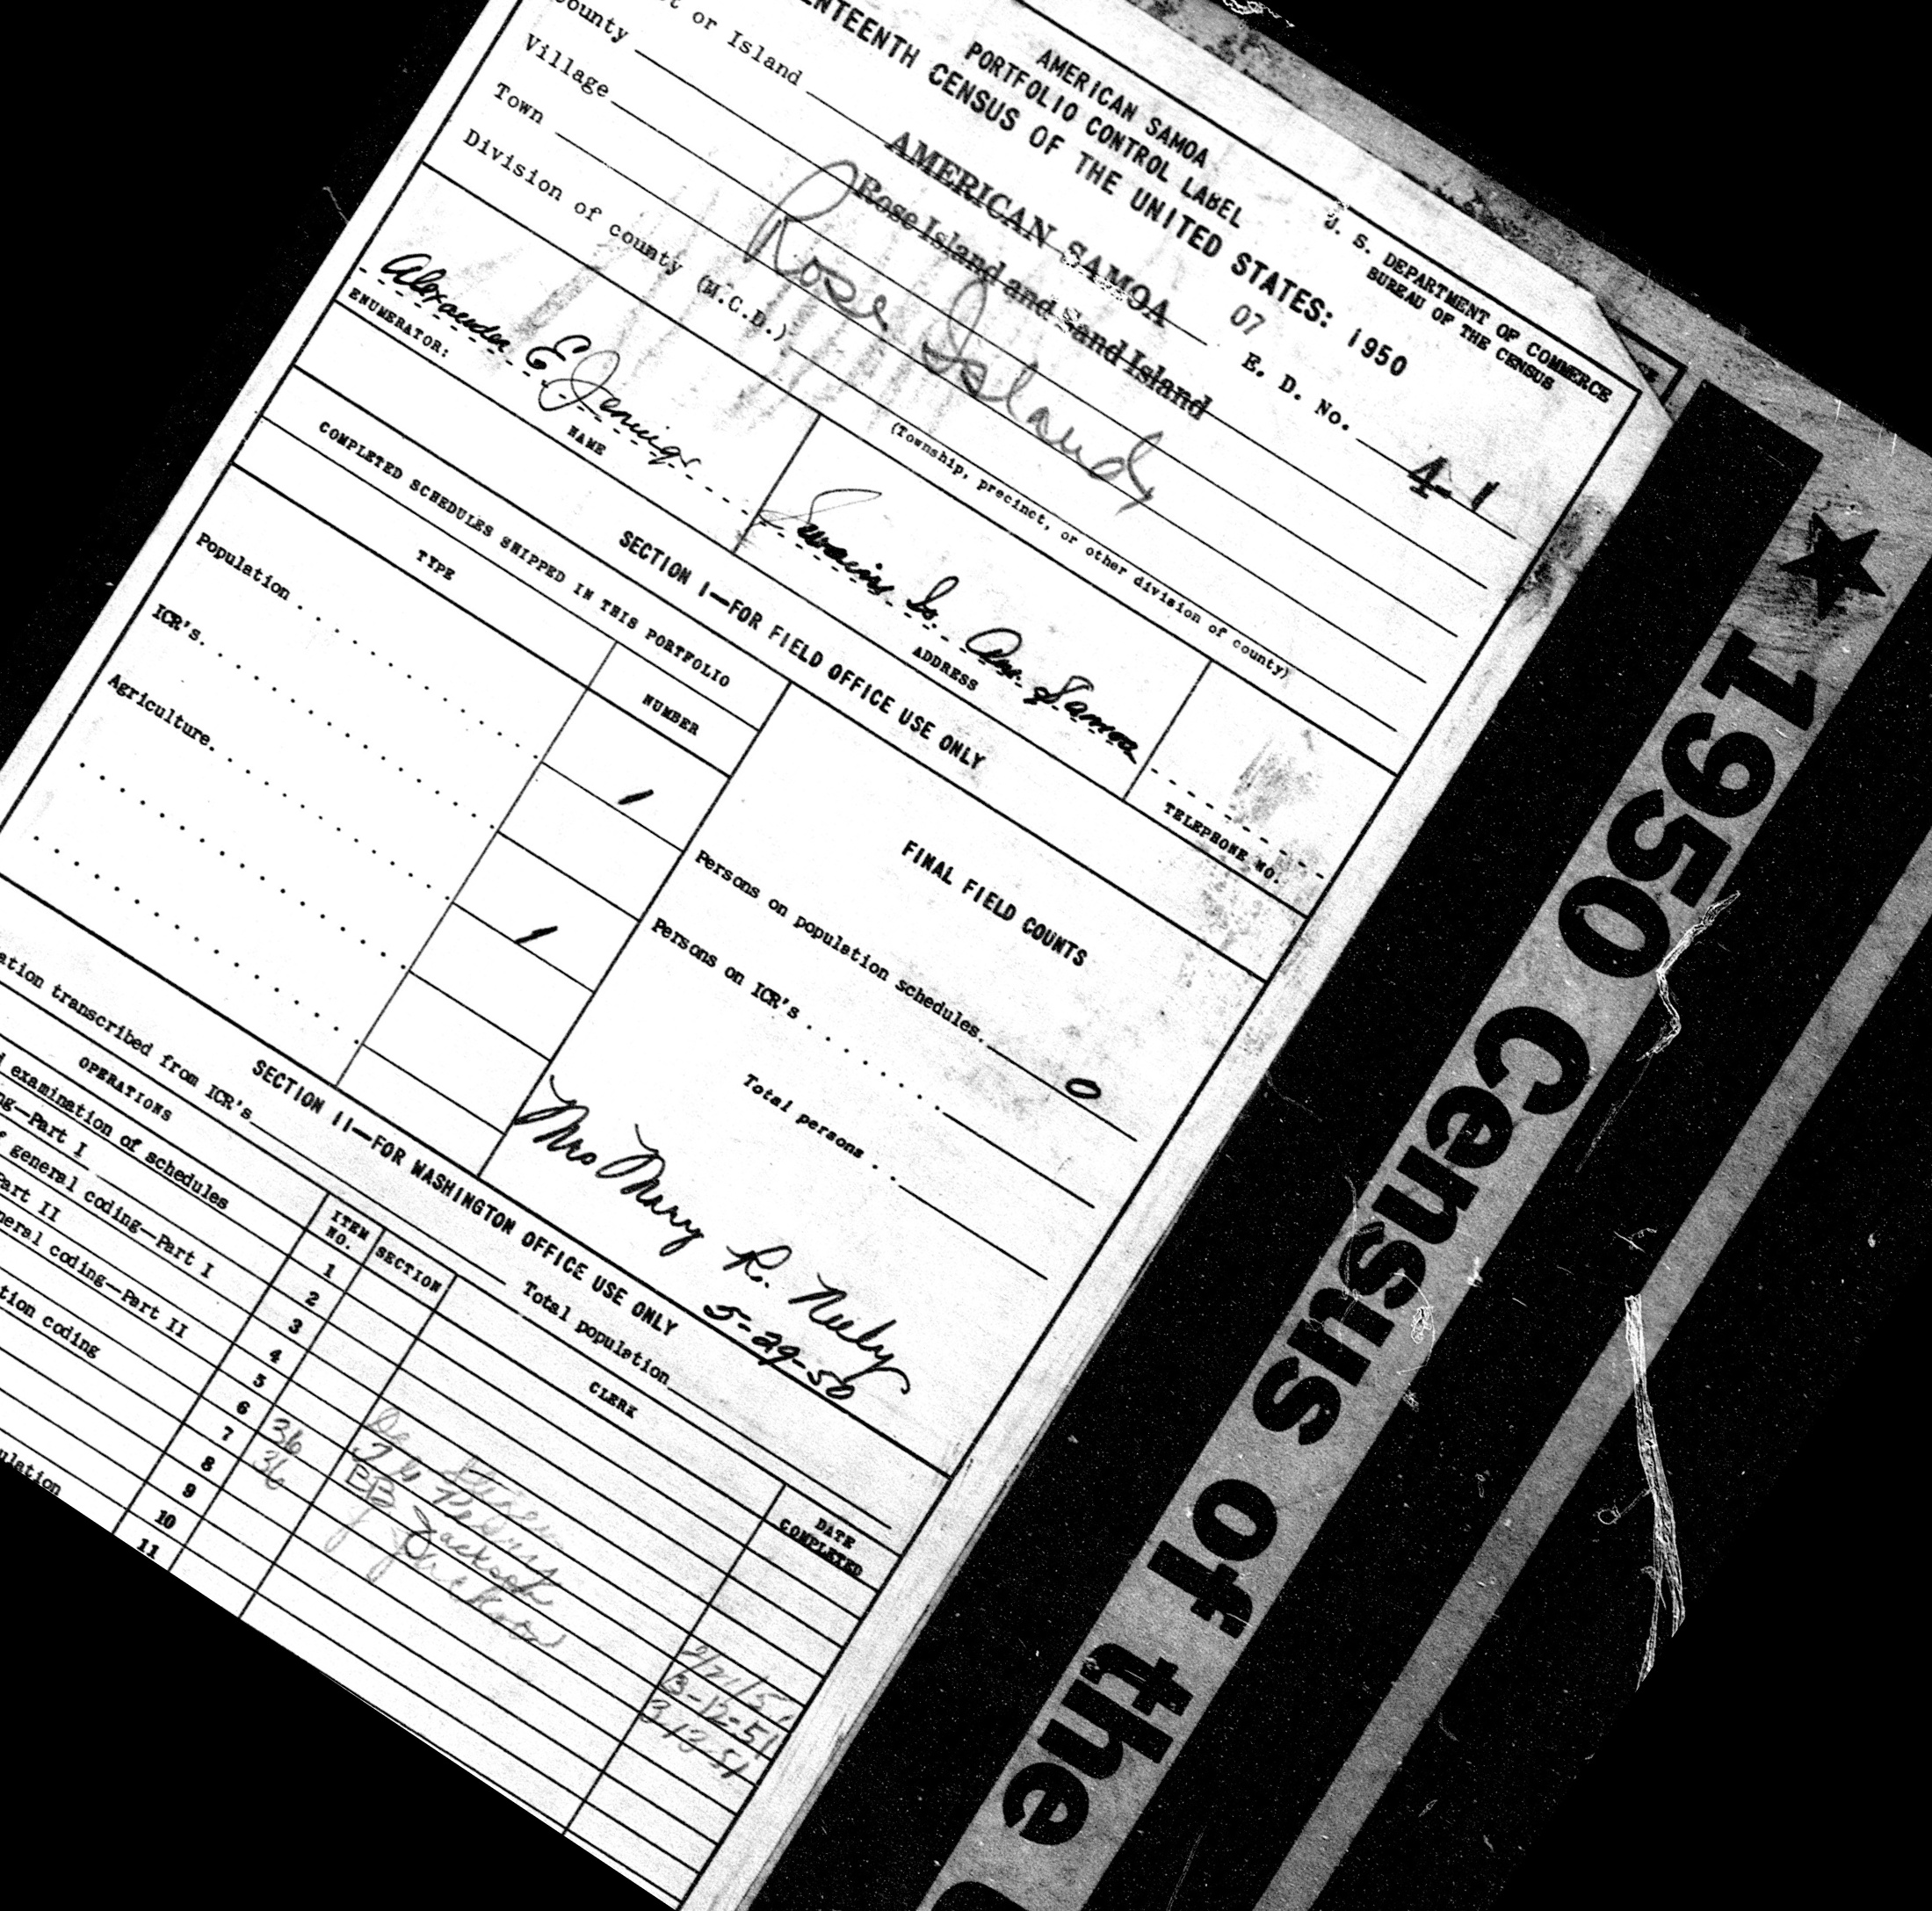 U. S. DEPARTMENT OF COMMERCE
BUREAU OF THE CENSUS
AMERICAN SAMOA
PORTFOLIO CONTROL LABEL
ENTEENTH CENSUS OF THE UNITED STATES: 1950
t or Island AMERICAN SAMOA 07 E. D. No. 4-1
ounty Rose Island and Sand Island
Village Rose Island
Town
Division of county (M.C.D.)
(Township, precinct, or other division of county)
Alexander E. Jennings Swains Is. Am. Samoa
ENUMERATOR: NAME ADDRESS TELEPHONE NO.
SECTION I—FOR FIELD OFFICE USE ONLY
COMPLETED SCHEDULES SHIPPED IN THIS PORTFOLIO
TYPE NUMBER
FINAL FIELD COUNTS
Population 1
ICR's
Agriculture 1
Persons on population schedules 0
Persons on ICR's
Total persons
Mrs Mary R. Neely
5-29-50
SECTION II—FOR WASHINGTON OFFICE USE ONLY
ation transcribed from ICR's Total population
OPERATIONS ITEM NO. SECTION CLERK DATE COMPLETED
examination of schedules 1
ng—Part I 2
general coding—Part I 3
art II 4
neral coding—Part II 5
6
tion coding 7 36
8 36 BB Jackson 3-12-51
9 J Jackson 3-12-51
10
ulation 11
★ 1950 Census of the